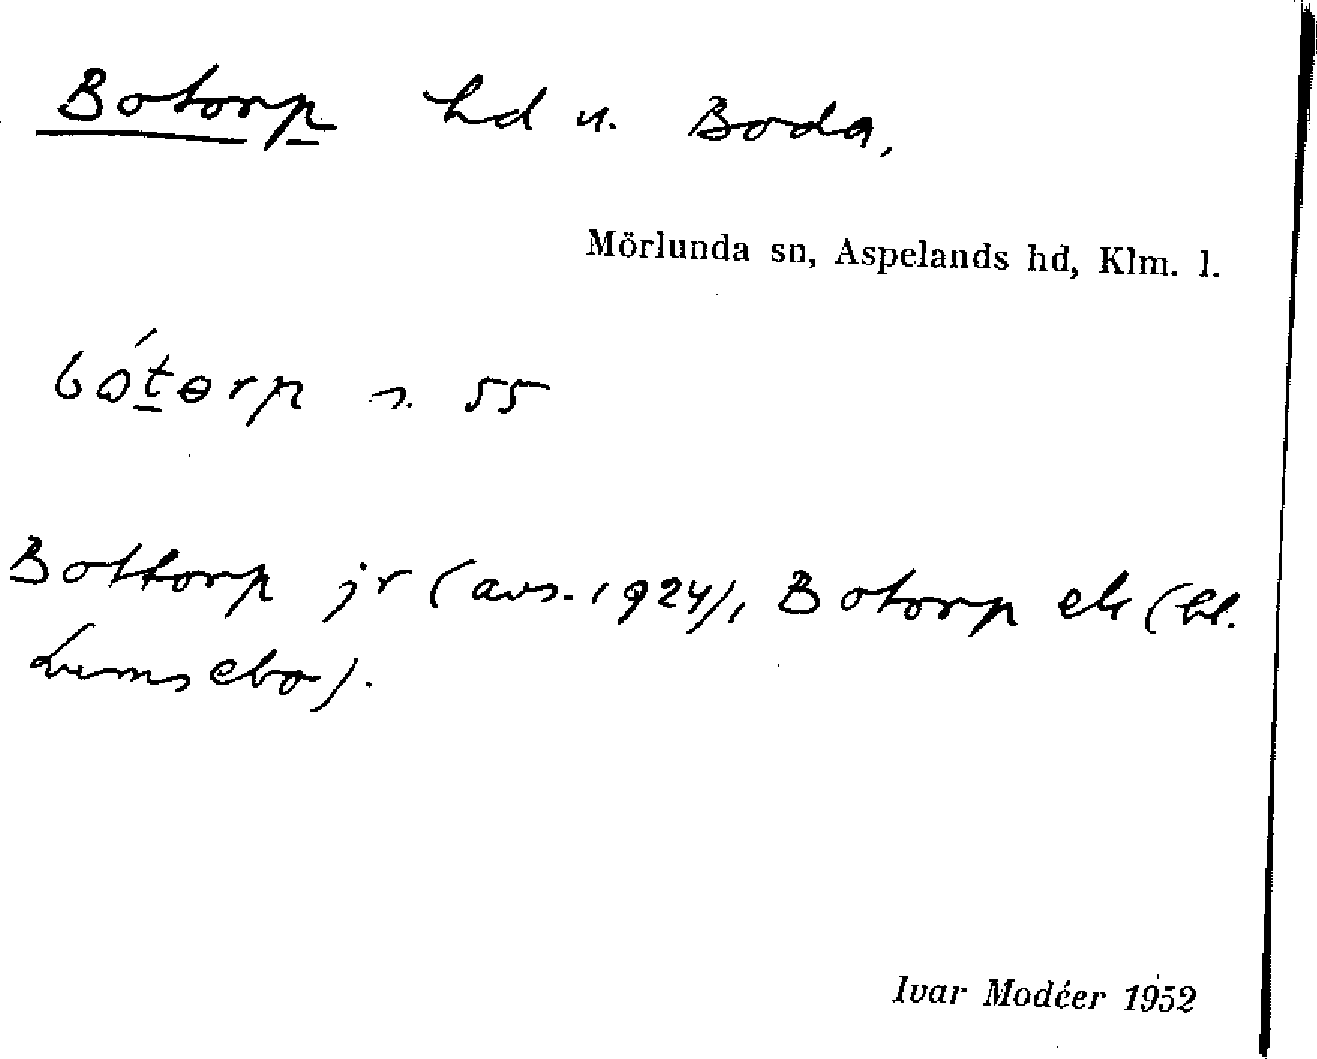 Botorp hd u. Boda,
Mörlunda sn, Aspelands hd, Klm. l.
bótorp s. 55
Bottorp jr (avs. 1924), Botorp ek (bl.
Ivar Modéer 1952